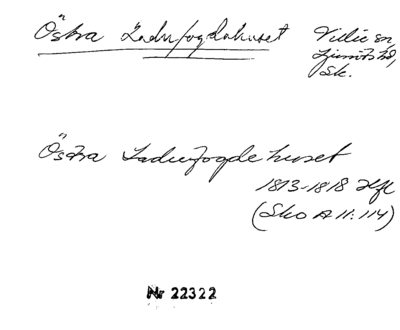 Östra Ladufogdahuset
Vilie sn
Ljunits hd,
Sk.
Östra Ladufogdehuset
1813-1818 Hfl
(Sko A II: 114)
Nr 22322